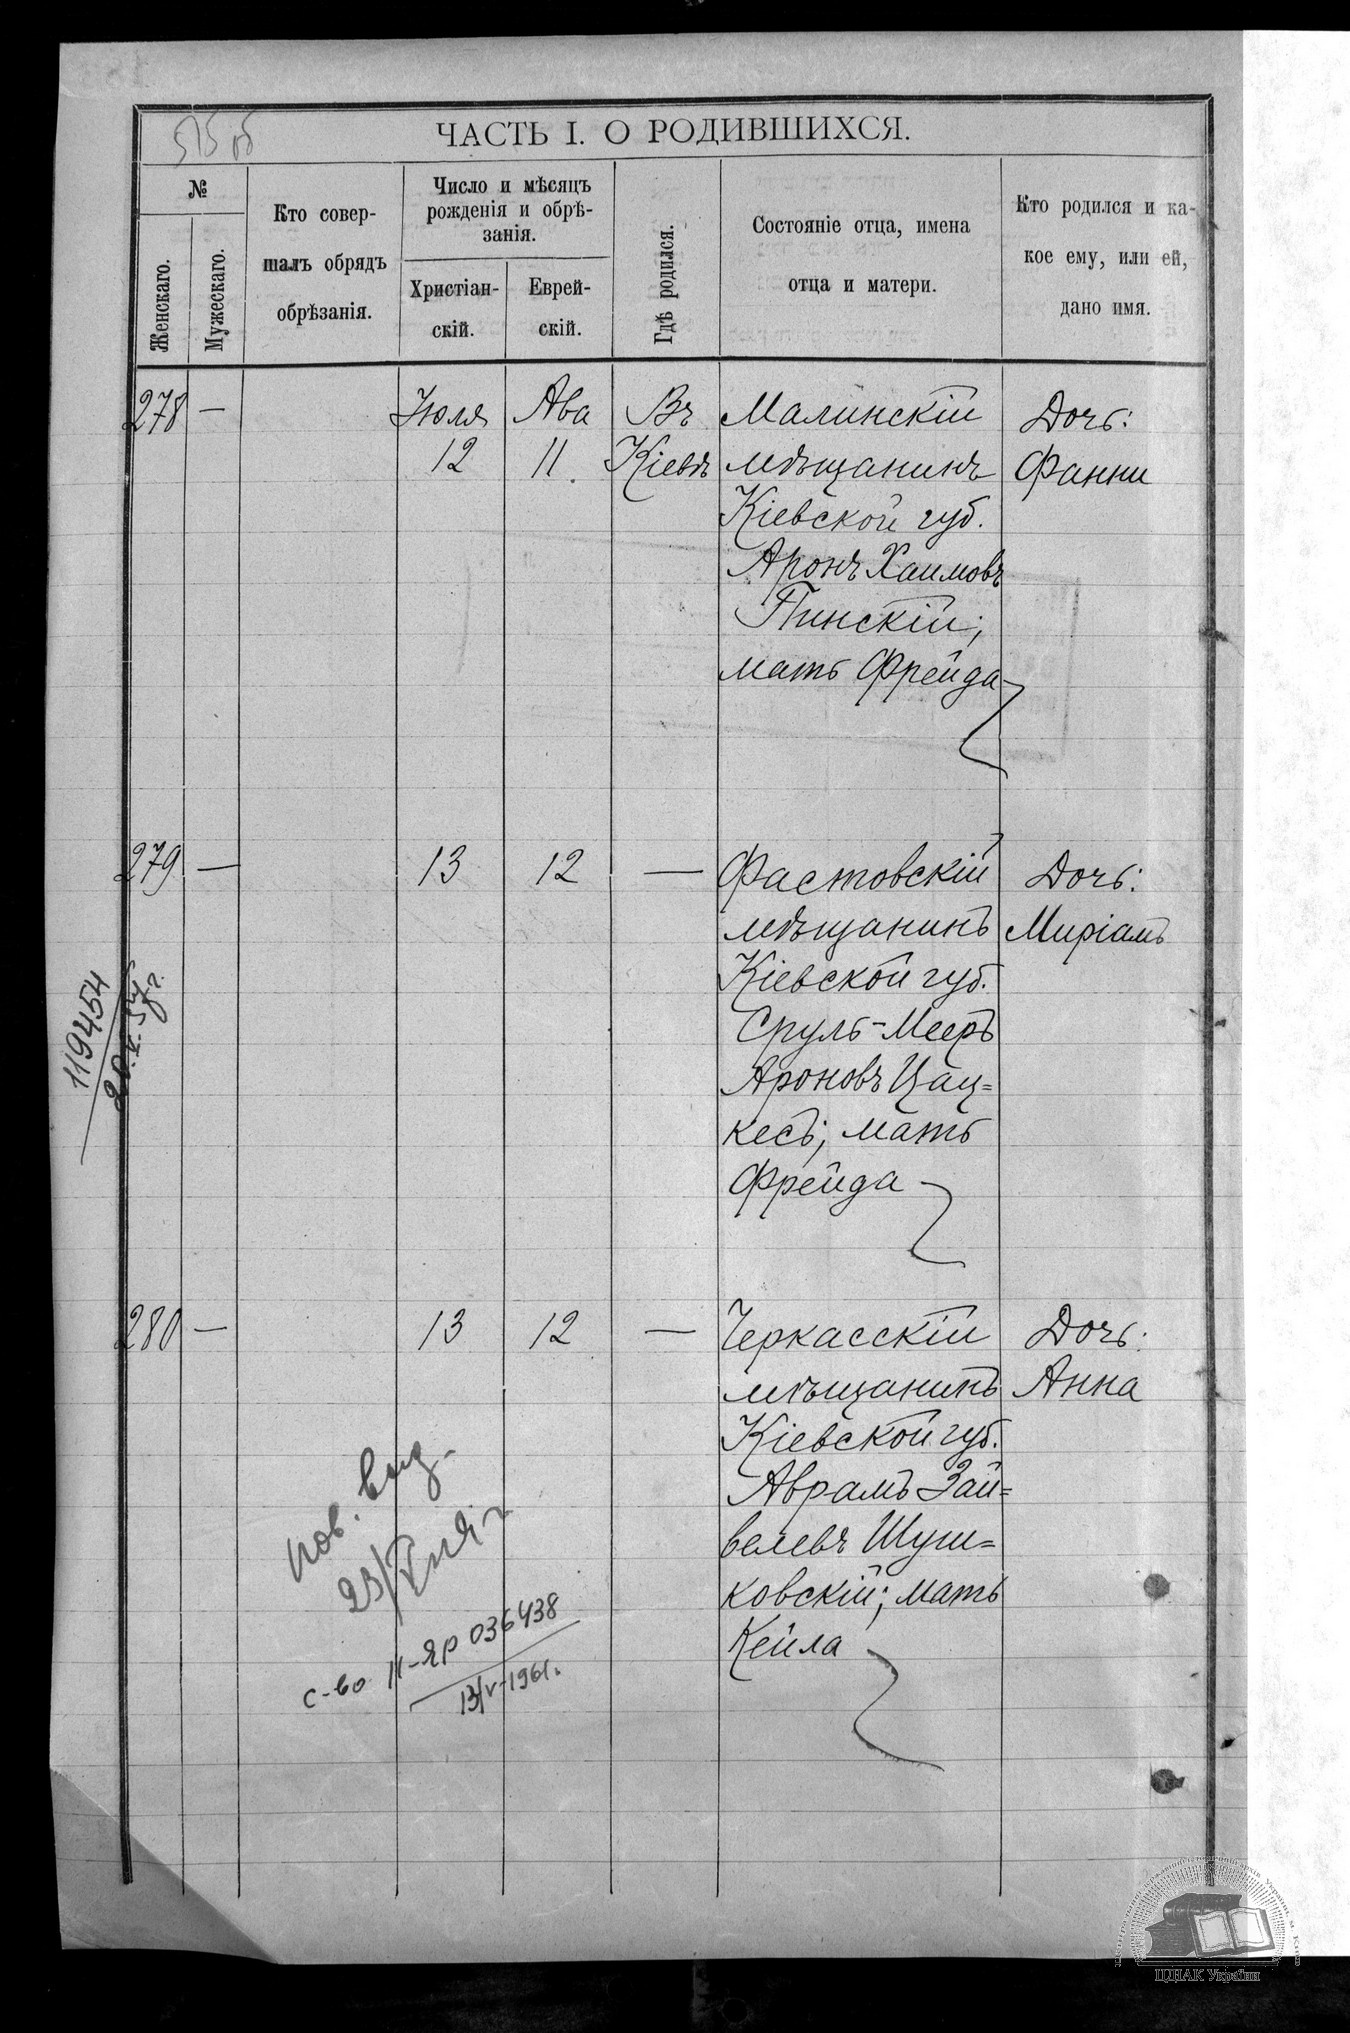 ЧАСТЬ I. О РОДИВШИХСЯ.
№
Женскаго.
Мужескаго.
Кто совер-
шалъ обрядъ
обрѣзанія.
Число и мѣсяцъ
рожденія и обрѣ-
занія.
Христіан-
скій.
Еврей-
скій.
Гдѣ родился.
Состояніе отца, имена
отца и матери.
Кто родился и ка-
кое ему, или ей,
дано имя.
278 — Іюля 12 Ава 11. Въ Кіевѣ
Малинскій
мѣщанинъ
Кіевской губ.
Аронъ Хаимовъ
Пинскій;
мать Фрейда
Дочь:
Фанни
279 — 13 12 —
Фастовскій
мѣщанинъ
Кіевской губ.
Сруль-Мееръ
Ароновъ Цац=
кесъ; мать
Фрейда
Дочь:
Миріамъ
119454
280 — 13 12 —
Черкасскій
мѣщанинъ
Кіевской губ.
Аврамъ Зай=
велевъ Шуш=
ковскій; мать
Кейла
Дочь:
Анна
пов. выд.
с-во II-ЯР 036438
13/V-1961.
ЦДІАК України